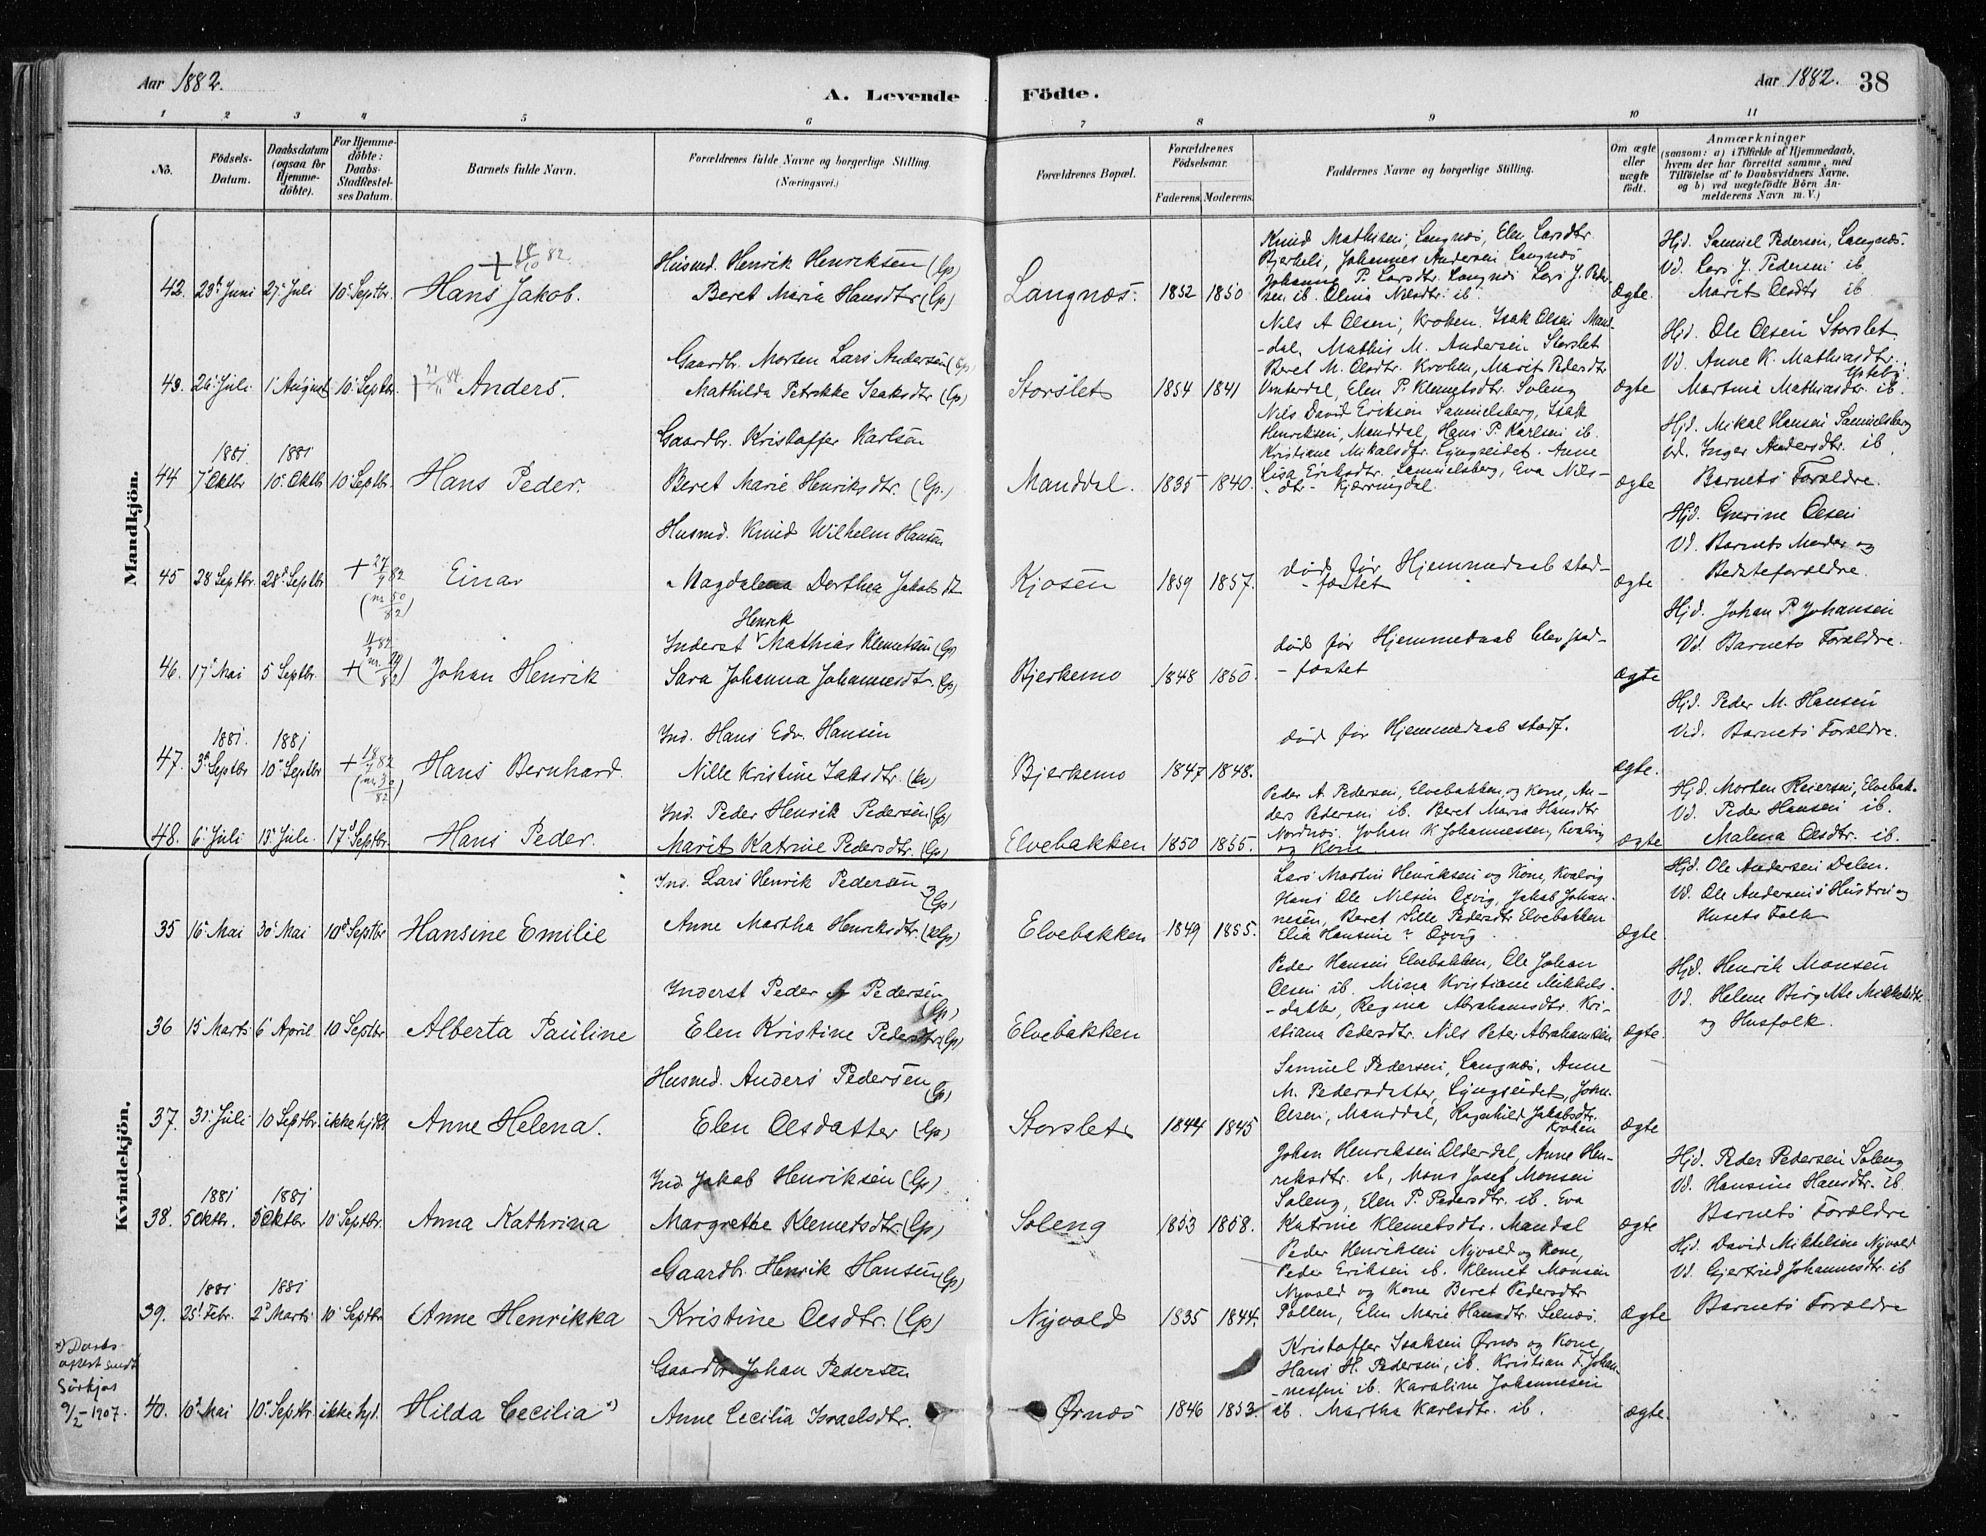 Aar 1882.
A. Levende Födte.
Aar 1882. 38
1 2 3 4 5 6 7 8 9 10 11
No.
Födsels-Datum.
Daabsdatum (ogsaa for Hjemme-döbte).
For Hjemme-döbte: Daabs-Stadfæstel-ses Datum.
Barnets fulde Navn.
Forældrenes fulde Navne og borgerlige Stilling. (Næringsvei.)
Forældrenes Bopæl.
Forældrenes Födselsaar.
Faderens. Moderens.
Faddernes Navne og borgerlige Stilling.
Om ægte eller uægte födt.
Anmærkninger
(saasom: a) i Tilfælde af Hjemmedaab,
hvem der har forrettet samme, med
Tilföielse af to Daabsvidners Navne,
og b) ved uægtefödte Börn An-
melderens Navn m. V.)
Mandkjön.
+ 18/10 82.
42. 23d Juni 27 Juli 10 Septbr. Hans Jakob.
Husmd. Henrik Henriksen (Lp)
Beret Maria Hansdtr (Lp)
Langnæs. 1852 1850
Knud Mathisen, Langnæs, Elen Larsdtr.
Bjerkeli, Johannes Andersen Langnæs
Johanna P. Larsdtr. Langnæs Lars J. Peder-
sen ib. Olina Nilsdtr. ib.
ægte.
Hjd. Samuel Pedersen, Langnæs.
Vd. Lars J. Pedersen ib
Marit Olsdtr ib
43. 26 Juli 1 August 10 Septbr. Anders.
Gaardbr. Morten Lars Andersen (Lp)
Mathilda Petrikke Isaksdtr (Lp)
Storslet 1854 1841
Nils A Olsen, Kroken. Isak Olsen Man-
-dal, Mathis M. Andersen Storslet
Beret M. Olsdtr. Kroken, Marit Pedersdtr
Vinterdal, Elen P. Klemetsdtr. Soleng
ægte
Hjd. Ole Olsen Storslet
Vd. Anne K. Mathiasdtr.
Martina Mathiasdtr. ib.
44 1881 7 Oktbr 1881 10 Oktbr 10 Septbr. Hans Peder.
Gaardbr. Kristoffer Karlsen
Beret Marie Henriksdtr. (Lp.)
Manddal. 1835 1840.
Nils David Eriksen Samuelsberg, Isak
Henriksen, Manddal, Hans P. Karlsen ib.
Kristiane Mikalsdtr. Lyngseidet. Anne
Lisa Eriksdtr. Samuelsberg, Eva Nils-
-dtr- Kjærringdal.
ægte
Hjd. Mikal Hansen Samuelsberg
Vd. Inger Andersdtr. ib.
Barnets Forældre.
45 28 Septbr. 28 Septbr + 82 Einar
Husmd. Knud Wilhelm Hansen
Magdalena Dorthea Jakobsdt
Kjosen 1859 1857.
død før Hjemmedaab stad-
-fæstet
ægte
Hjd. Olsen
Vd. Barnets Moder og
Bedsteforældre.
46. 17 Mai 5 Septbr. + Johan Henrik
Henrik
Inderst Mathias Klemetsen (Lp)
Sara Johanna Johannesdtr. (Lp)
Bjerkemo 1848 1850.
død før Hjemmedaab blev stad-
-fæstet
ægte
Hjd. Johan P. Johansen
Vd. Barnets Forældre.
47. 1881. 3 Septbr 1881 10 Septbr + 82 Hans Bernhard.
Ind. Hans Edv. Hansen
Nille Kristine Isaksdtr. (Kv)
Bjerkemo 1847 1848.
død før Hjemmedaab stadf.
ægte.
Hjd. Peder M. Hansen
Vd. Barnets Forældre.
48. 6 Juli 13 Juli. 17 Septbr. Hans Peder.
Ind. Peder Henrik Pedersen (Lp)
Marit Katrine Pedersdtr. (Lp)
Elvebakken 1850 1855.
Peder A. Pedersen, Elvebakken, og Kone, An-
ders Pedersen ib. Beret Maria Hansdtr
Nordnæs. Johan K Johannessen, Kvalvig
og Kone
ægte
Hjd. Morten Reiersen, Elvebak.
Vd. Peder Hansen ib.
Malena Olsdtr. ib.
Kvindekjön.
35 16 Mai 30 Mai 10 Septbr Hansine Emilie
Ind. Lars Henrik Pedersen (Lp)
Anne Martha Henriksdtr. (Lp)
Elvebakken 1849 1855.
Lars Martin Henriksen og Kone, Kvalvig
Hans Ole Nilsen Oxvig, Jakob Johan-
nesen, Beret Sille Pedersdtr Elvebakken
Elia Hansine ? Oxvig.
ægte
Hjd. Ole Andersen Dalen.
Vd. Ole Andersens Hustru og
Husets Folk
36 15 Marts 6 April 10 Septbr Alberta Pauline
Inderst Peder Pedersen (Lp)
Elen Kristine Pedersdtr (Lp)
Elvebakken
Peder Hansen Elvebakken, Ole Johan
Olsen ib. Mina Kristiane Mikkels-
-datter, Regina Abrahamsdtr. Kri-
stiana Pedersdtr. Nils Peter Abrahamsen
ægte.
Hjd. Henrik Monsen
Vd. Helene Mikkelsdtr.
og Husfolk.
37. 31 Juli 10 Septbr. ikke hjd. Anne Helena.
Husmd. Anders Pedersen (Lp)
Elen Olsdatter (Lp)
Storslet 1844 1845
Samuel Pedersen, Langnæs, Anne
M. Pedersdatter, Lyngseidet, John
Olsen, Manddal, Ragnhild Jakobsdtr.
Kroken
ægte
38. 1881 5 Oktbr. 1881 5 Oktbr 10 Septbr. Anna Kathrina
Ind. Jakob Henriksen (Lp)
Margrethe Klemetsdtr (Lp)
Soleng 1853 1858.
Johan Henriksen Olderdal, Anne Hen-
riksdtr. ib, Mons Josef Monsen
Soleng, Elen P. Pedersdtr. ib. Eva
Katrine Klemetsdtr. Mandal
ægte
Hjd. Peder Pedersen Soleng
Vd. Hansine Hansdtr. ib.
Barnets Forældre
39. 1881 25 Febr. 1881 2 Marts 10 Septbr Anne Henrikka
Gaardbr. Henrik Hansen (Lp)
Kristine Olsdtr. (Lp)
Nyvold 1835 1844.
Peder Henriksen Nyvold og Kone,
Peder Eriksen ib. Klemet Monsen
Nyvold og Kone Beret Pedersdtr
Pollen, Elen Marie Hansdtr. Solnæs.
ægte
Hjd. David Mikkelsen Nyvold
Vd. Gjertrud Johannesdtr. ib
Barnets Forældre
x) Daabs-
attest sendt
Sörkjos
9/2-1907.
40. 10 Mai 10 Septbr ikke hjd. Hilda Cecilia x)
Gaardbr Johan Pedersen
Anne Cecilia Israelsdtr.
Ørnæs 1846 1853.
Kristoffer Isaksen Ørnæs og Kone,
Hans H. Pedersen, ib. Kristian F. Johan-
-nessen ib. Karoline Johannesen
ib. Martha Karlsdtr. ib.
ægte.